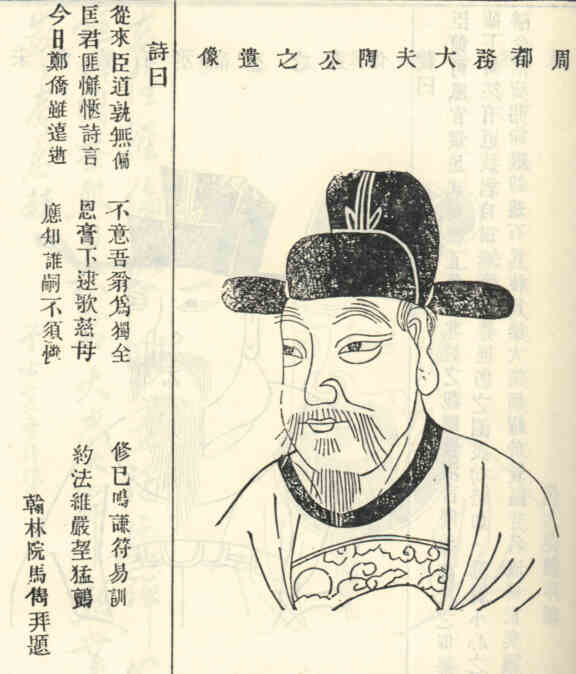 周都務大夫陶公之遺像
詩曰
從來臣道孰無偏 不意吾翁爲獨全 修已鳴謙符易訓
匡君匪懈愜詩言 恩膏下逮歌慈母 約法維嚴猛鸇
今日鄭僑雖遠逝 應知誰嗣不須憐
翰林院馬儁拜題